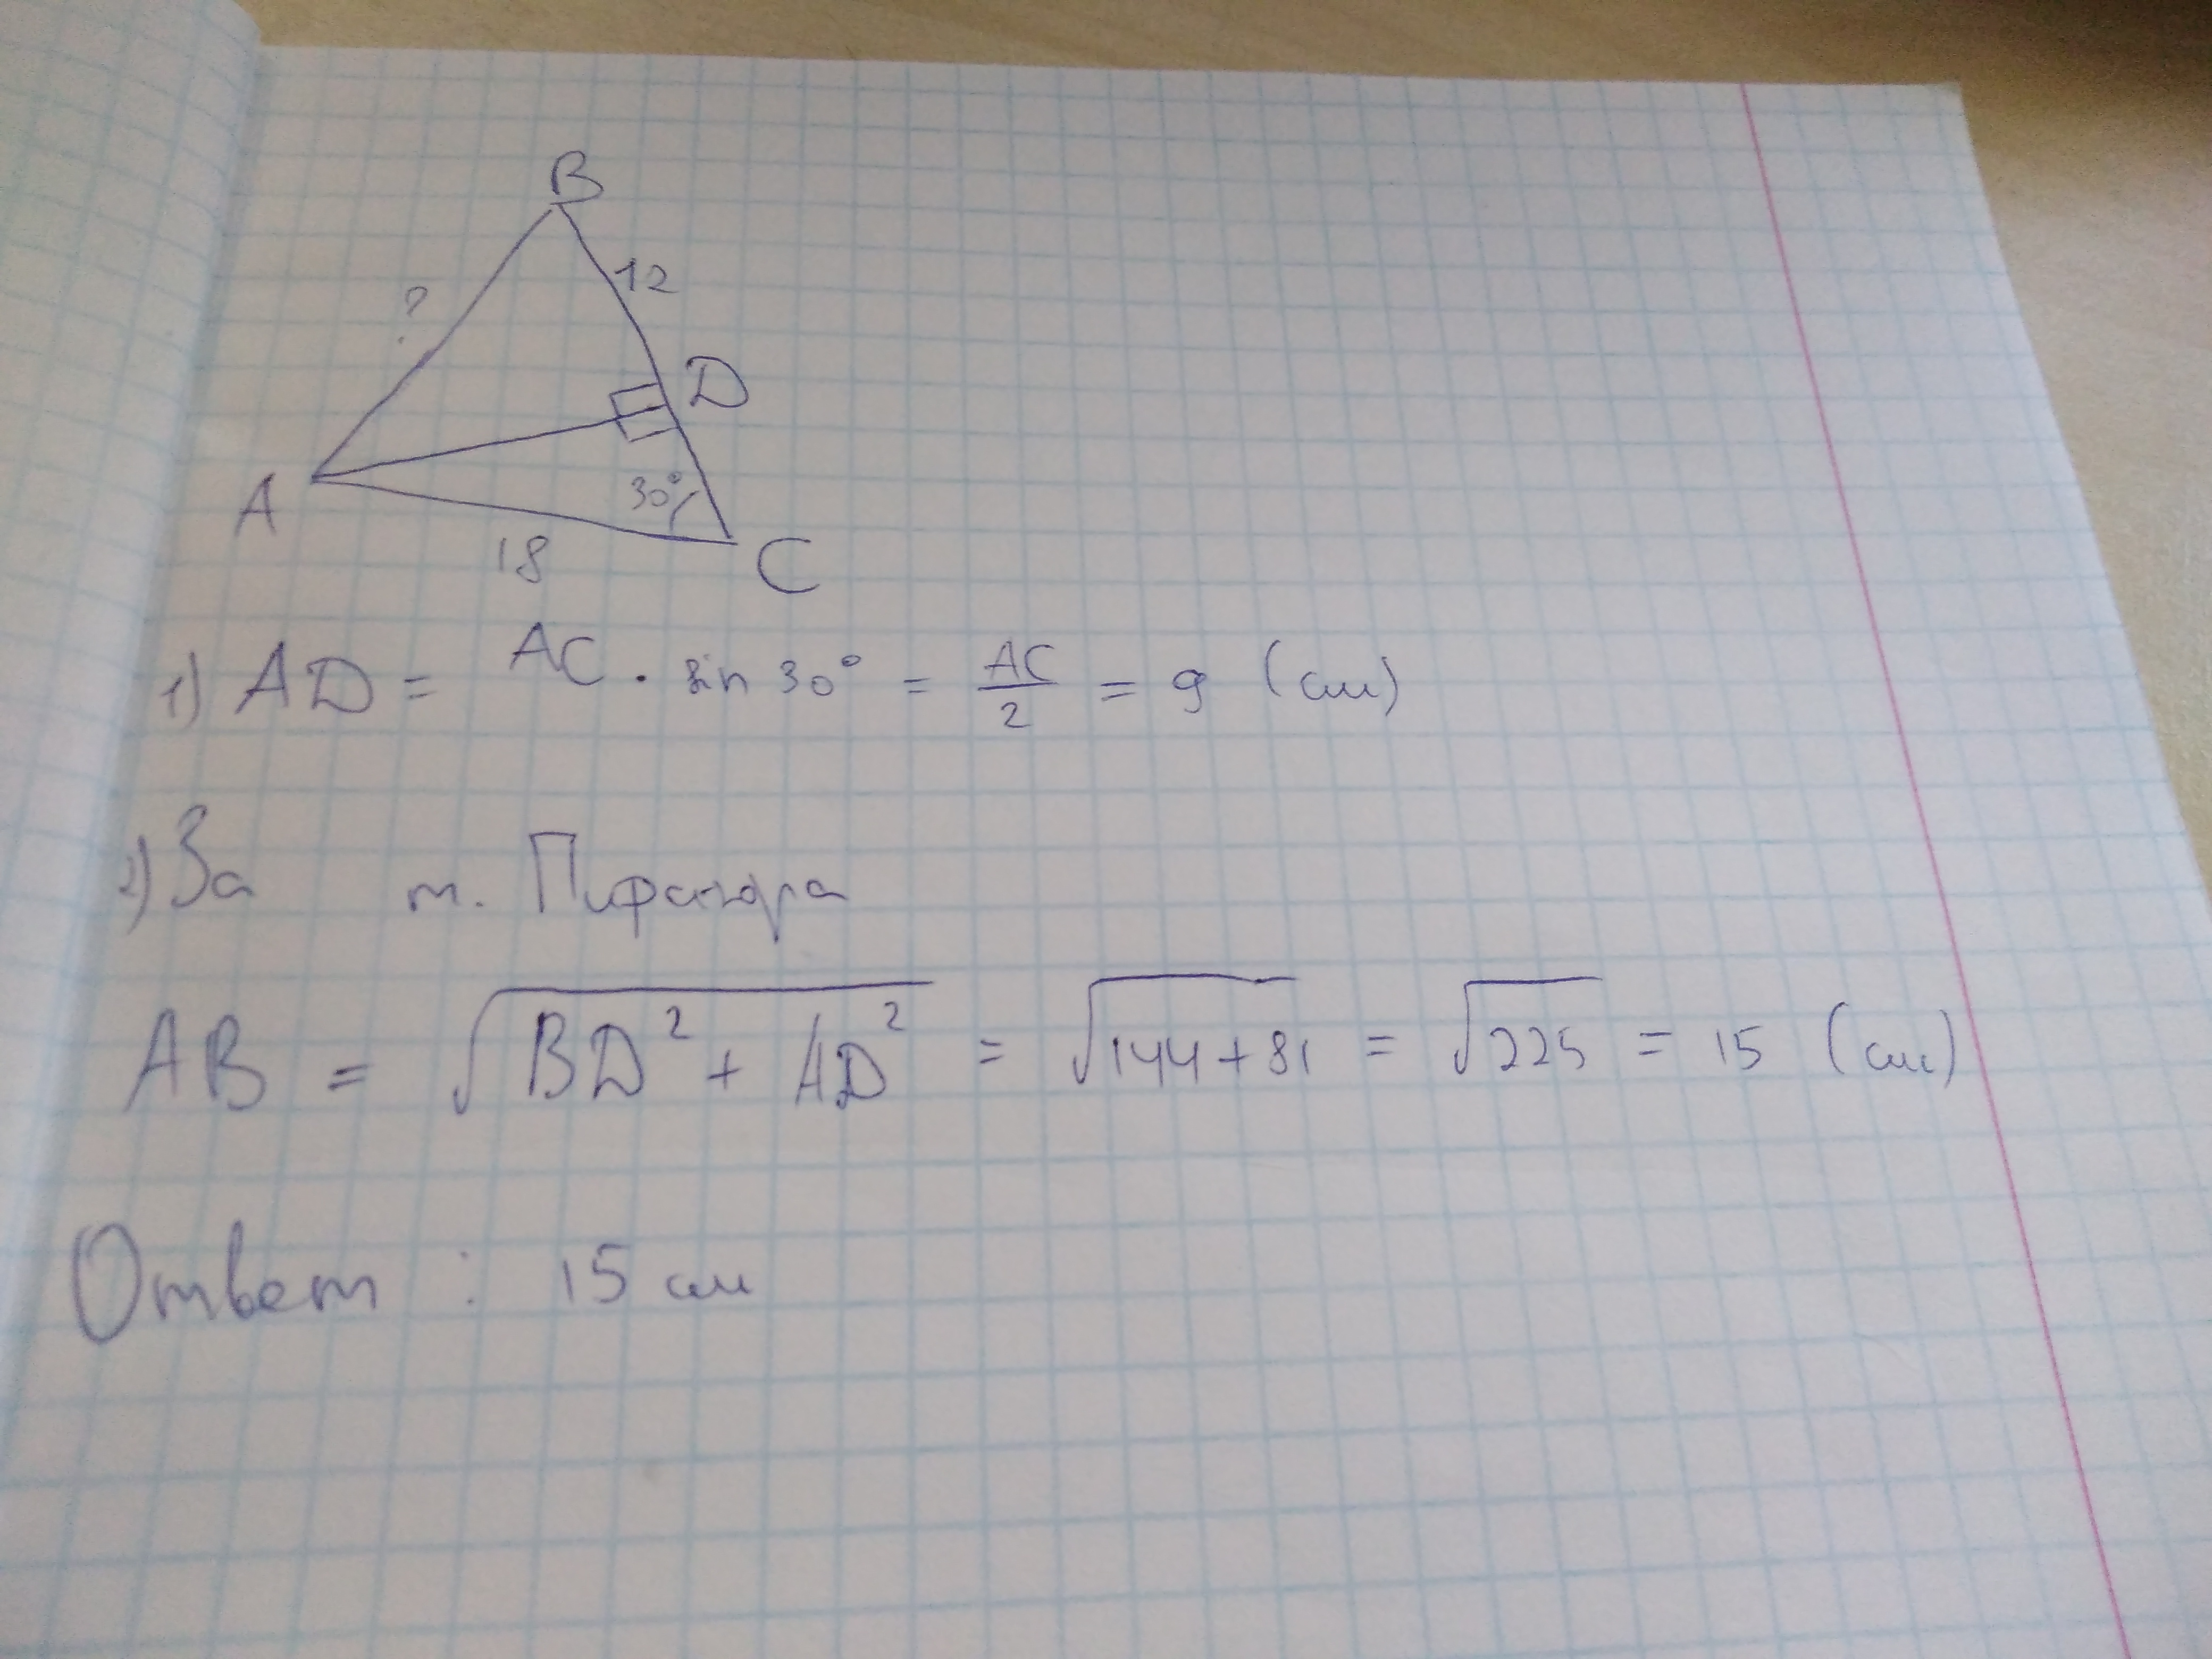 B
?
12
D
A
30°
18
C
1) AD = AC · sin 30° = AC/2 = 9 (см)
2) За т. Пифагора
AB = √(BD² + AD²) = √(144+81) = √225 = 15 (см)
Ответ : 15 см